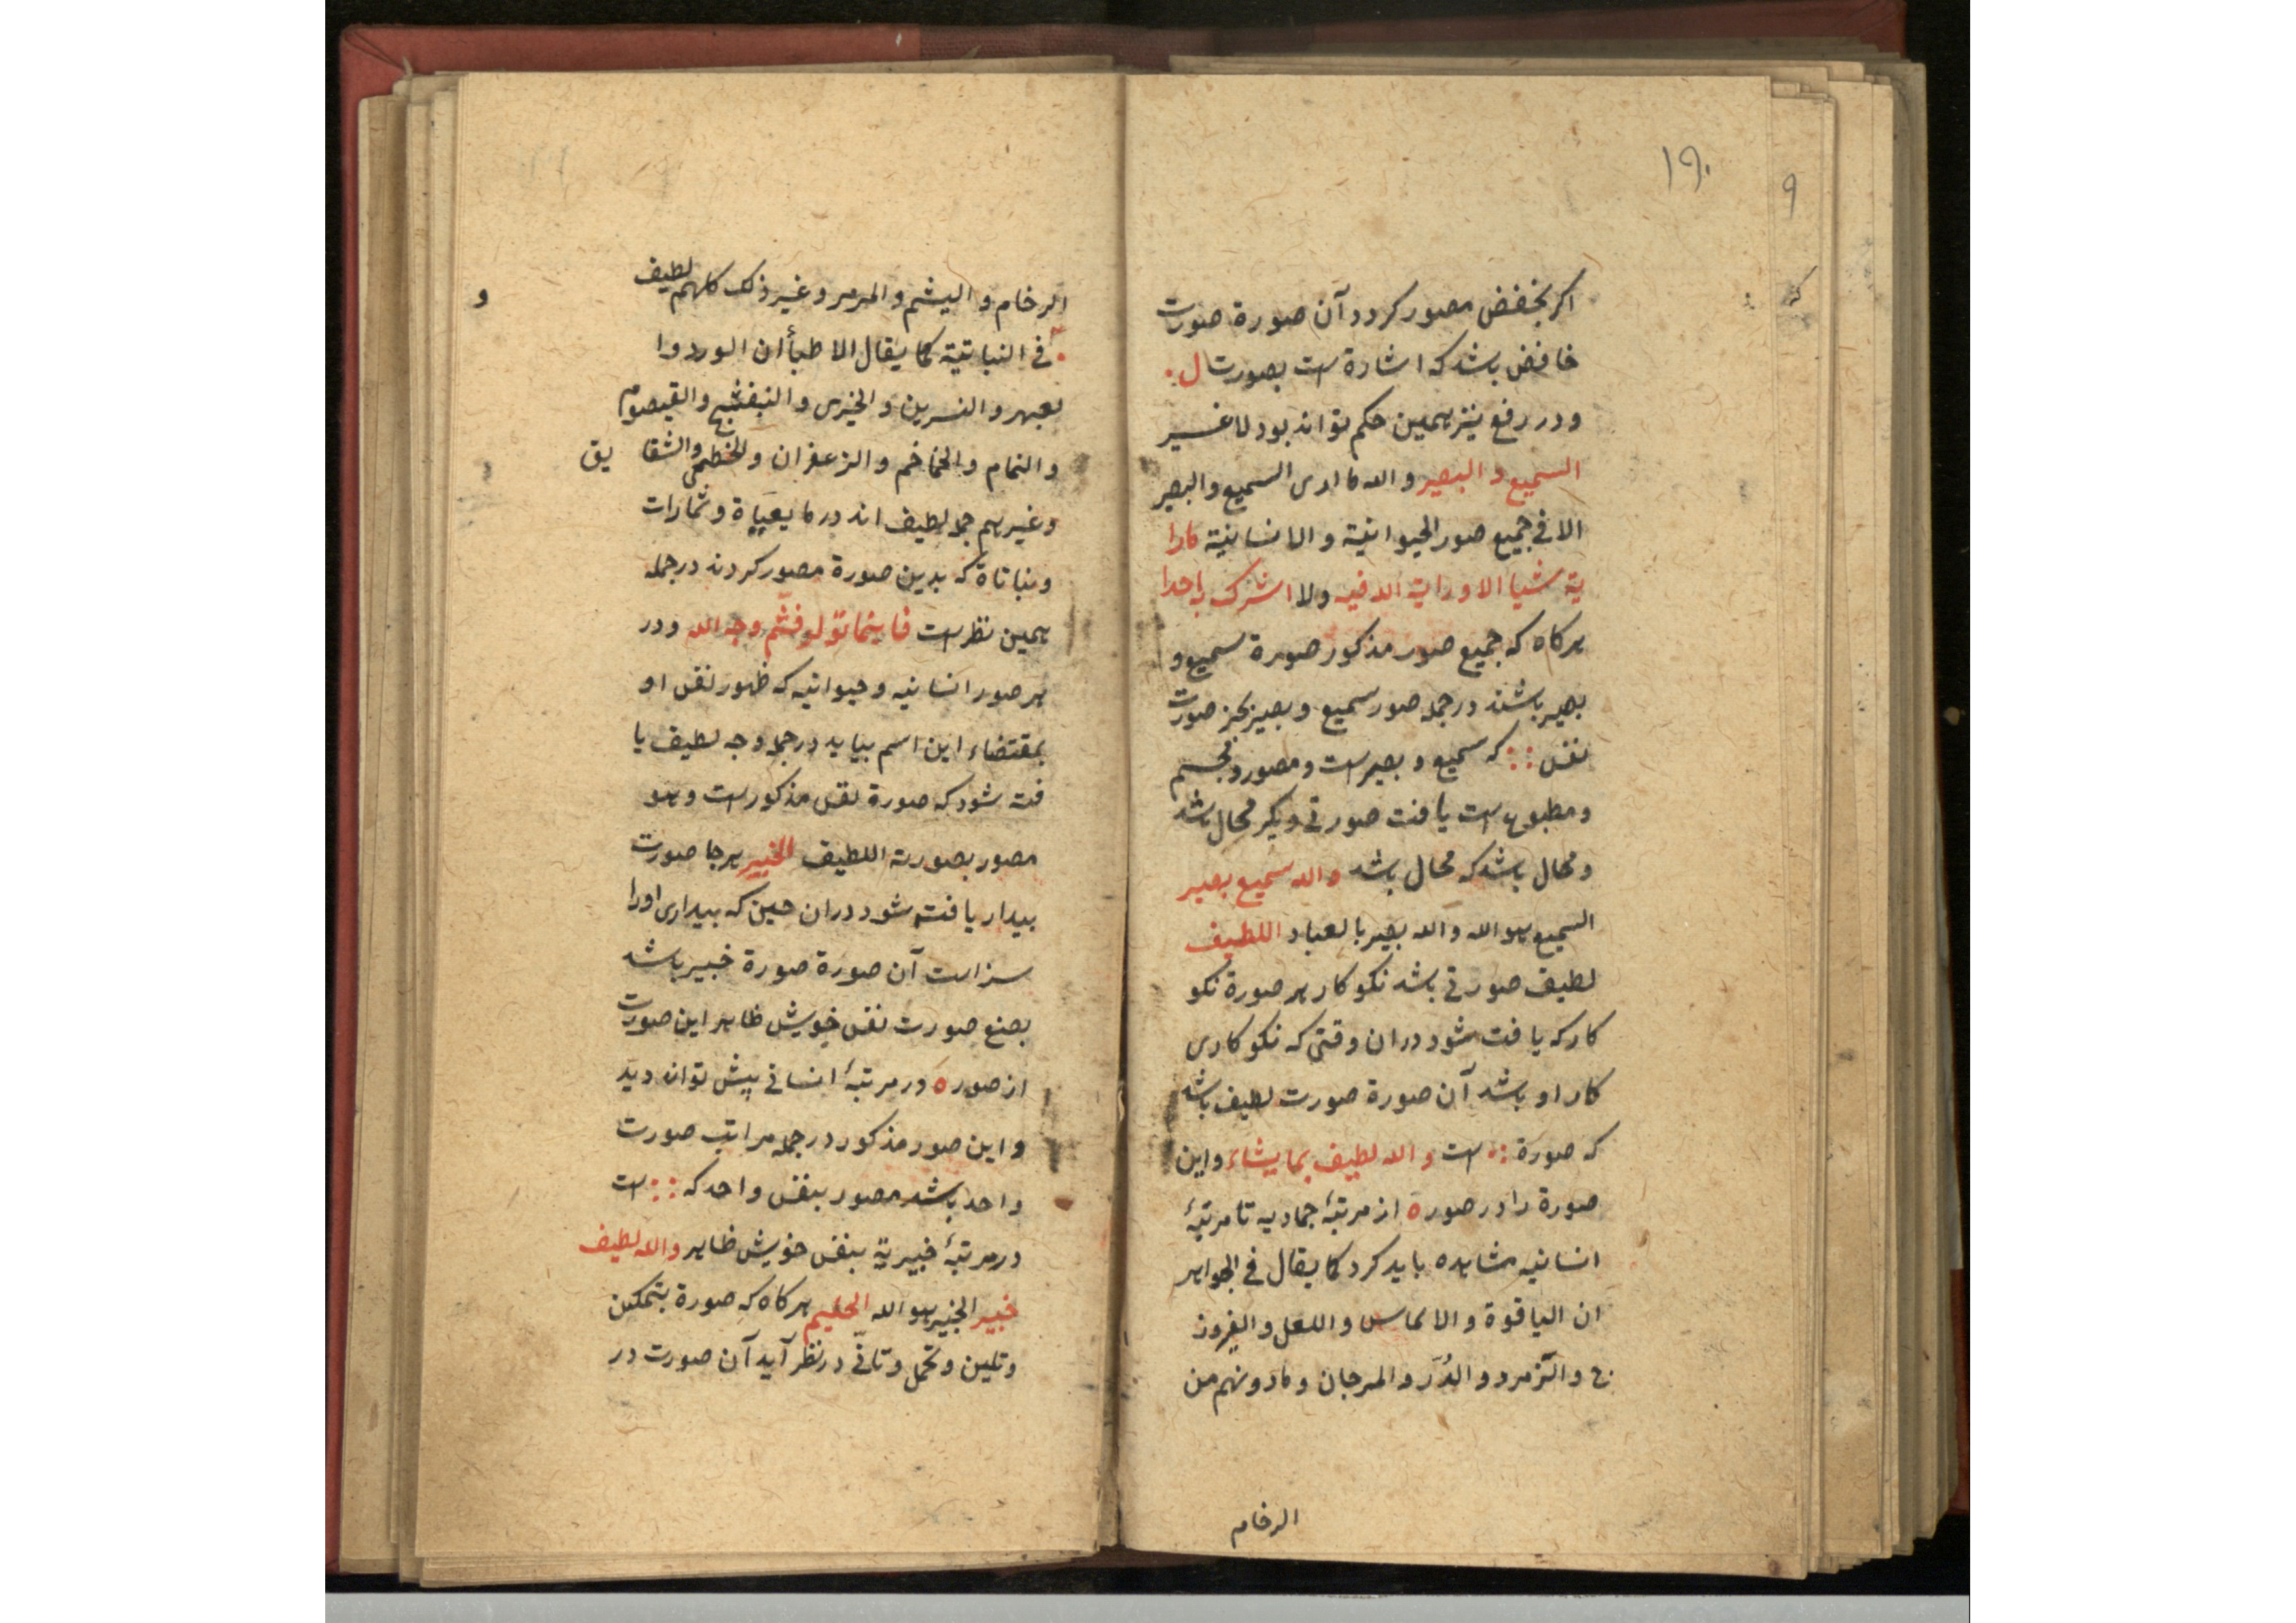 ۱۹۰
۹
اکر بخفض مصور کردد آن صورة صورت
خافض باشد که اشارة است بصورت ل .
و در رفع نیز همین حکم تواند بود لا غیر
السمیع و البصیر و الله ما ادری السمیع و البصیر
الا فی جمیع صور الحیوانیة و الانسانیة مارا
یة شیا الا و رایة الله فیه ولا اشرک به احدا
هر کاه که جمیع صور مذکور صورة سمیع و
بصیر باشند در جمله صور سمیع و بصیر بجز صورت
نفس :: که سمیع و بصیر است و مصور و مجسم
و مطبوع است یافت صورتی دیکر محال باشد
و محال باشد که محال باشد و الله سمیع بصیر
السمیع هو الله و الله بصیر بالعباد اللطیف
لطیف صورتی باشد نکوکار هر صورة نکو
کار که یافت شود در ان وقتی که نکوکاری
کار او باشد آن صورة صورت لطیف باشد
که صورة ؞ است و الله لطیف بما یشاء و این
صورة را در صور ه از مرتبهٔ جمادیه تا مرتبهٔ
انسانیه مشاهده باید کرد کما یقال فی الجواهر
ان الیاقوة و الالماس و اللعل و الفیروز
ج و الزمرد و الدُرّ و المرجان و ما دونهم من
الرخام
الرخام و الیشم و المرمر و غیر ذلک کلهم لطیف
و
فی النباتیة کما یقال الاطبأ ان الورد وا
لعبهر و النسرین و الخیری و البنفشج و القیصوم
و النمام و الخماخم و الزعفران و الخطمی و الشقا یق
و غیرهم جمله لطیف اند در ما یعیاة و ثمارات
و نباتاة که بدین صورة مصور کردند در جمله
همین نظر است فاینما تولو فثم وجه الله و در
هر صور انسانیه و حیوانیه که ظهور نفس او
بمقتضاء این اسم بیاید در جمله وجه لطیف یا
فت شود که صورة نفس مذکور است و هو
مصور بصورته اللطیف الخبیر هر جا صورت
بیدار یافت شود در ان حین که بیداری اورا
سزاست آن صورة صورة خبیر باشد
بصنع صورت نفس خویش ظاهر این صورت
از صور ه در مرتبهٔ انسانی بیش تواند دید
و این صور مذکور در جمله مراتب صورت
واحد باشد مصور بنفس واحد که :: است
در مرتبهٔ خبیریة بنفس خویش ظاهر و الله لطیف
خبیر الخبیر هو الله الحلیم هر کاه که صورة بتمکین
و تلین و تحمل و تانّی در نظر آید آن صورت در